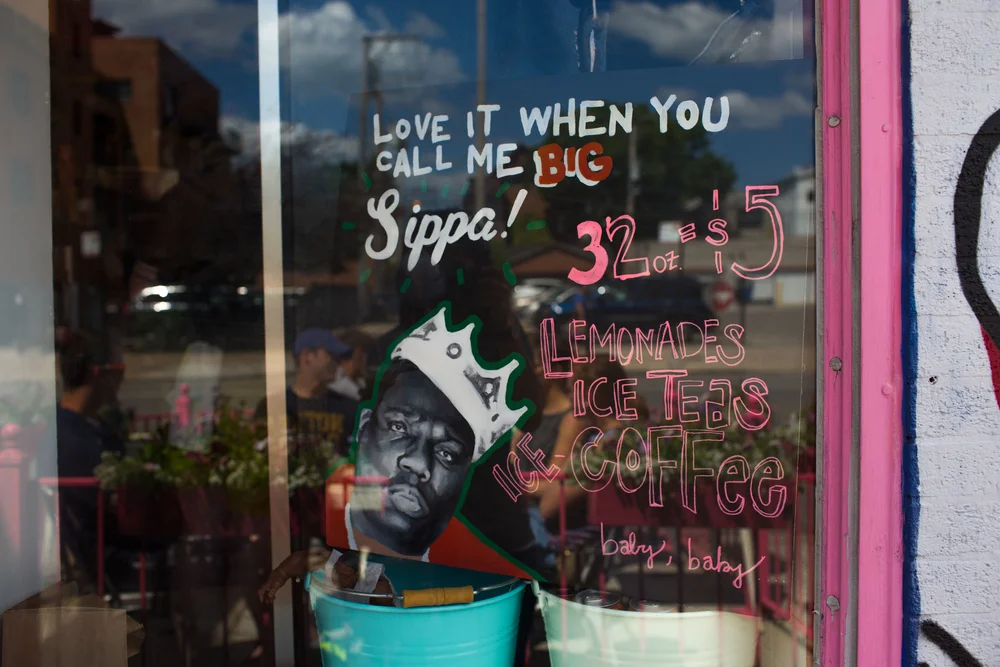 LOVE IT WHEN YOU
CALL ME BIG
Sippa!
32 oz. = $5
LEMONADES
ICE TEaS
ICE-COFFee
baby, baby